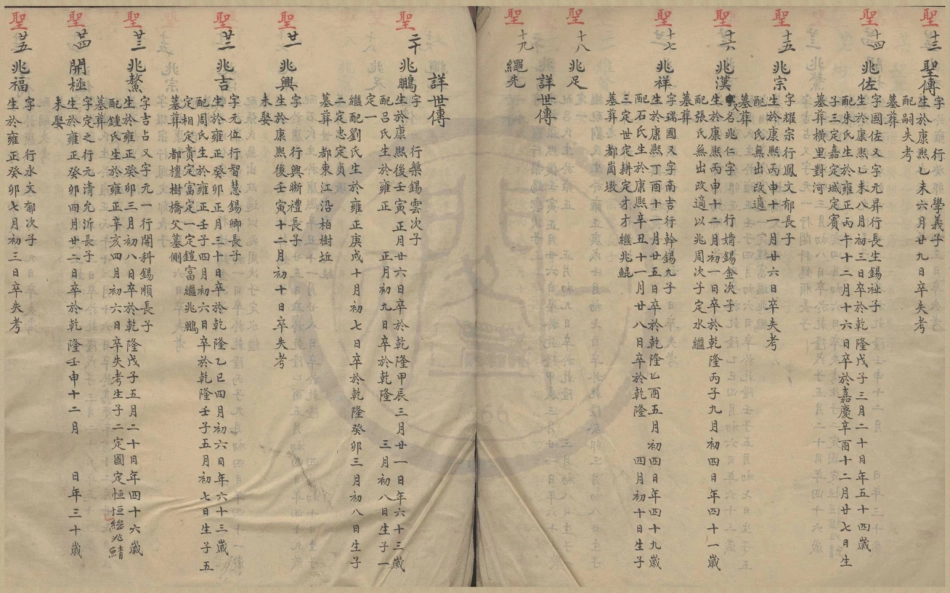 聖 十三 聖傳
字 行 學義子
生於康熙乙未六月廿九日卒失考
配嗣失考
聖 十四 兆佐
字國佐又字元昇行長生錫祉子
生於康熙乙未八月初三日卒於乾隆戊子三月二十日年五十四歲
配朱氏生於雍正丙午十二月十六日卒於嘉慶辛酉十二月廿七日生
子三定宏定嘉定城定賓
墓葬橫里對河
聖 十五 兆宗
字耀宗行鳳文郁長子
生於康熙丙申十一月廿六日卒失考
配 氏無出改適
墓葬
聖 十六 兆漢
名兆仁字 行 錫金次子
生於康熙丙申十二月初一日卒於乾隆丙子九月初四日年四十一歲
配張氏無出改適以兆周次子定水繼
墓葬
聖 十七 兆祥
字瑞國又字南吉行幹錫九子
生於康熙丁酉十一月廿五日卒於乾隆乙酉五月初四日年四十九歲
配石氏生於康熙辛丑十一月廿八日卒於乾隆 四月初十日生子
三定世定耕定才才繼兆鯤
墓葬 都
聖 十八 兆足
詳世傳
聖 十九 繩先
詳世傳
聖 二十 兆鵬
字 行樂錫雲次子
生於康熙後壬寅正月廿六日卒於乾隆甲辰三月廿一日年六十三歲
配呂氏生於雍正 正月初九日卒於乾隆 三月初八日生子一
定一
繼配劉氏生於雍正庚戌十月初七日卒於乾隆癸卯三月初八日生子
二定忠定貴
墓葬 都東江沿柏樹坵
聖 廿一 兆興
字 行興斷禮長子
生於康熙後壬寅十二月初十日卒失考
未娶
聖 廿二 兆吉
字元位行智慧錫鄉長子
生於雍正癸卯正月三十日卒於乾隆乙巳四月初六日年六十三歲
配周氏生於雍正壬子四月初六日卒於乾隆壬子五月初七日生子五
定相定貴定富定一定鎧富繼兆鵬
墓葬 都檀樹橋父墓側
聖 廿三 兆鰲
字吉占又字元一行闌斜錫順長子
生於雍正癸卯三月初八日卒於乾隆戊子五月二十日年四十六歲
配鍾氏生於雍正辛亥四月初六日卒失考生子二定國定恒恒繼兆
墓葬
聖 廿四 開極
字定之行元清允沂長子
生於雍正癸卯四月廿二日卒於乾隆壬申十二月 日年三十歲
未娶
聖 廿五 兆福
字 行永文郁次子
生於雍正癸卯七月初三日卒失考